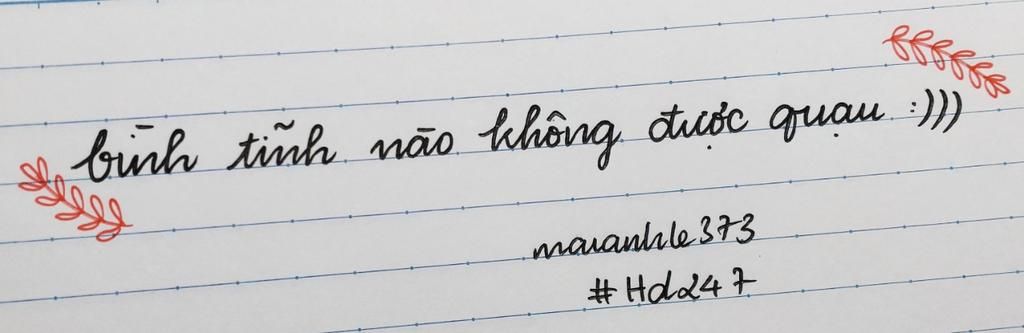 bình tĩnh nào không được quạu :)))
maianhle373
#Hd247